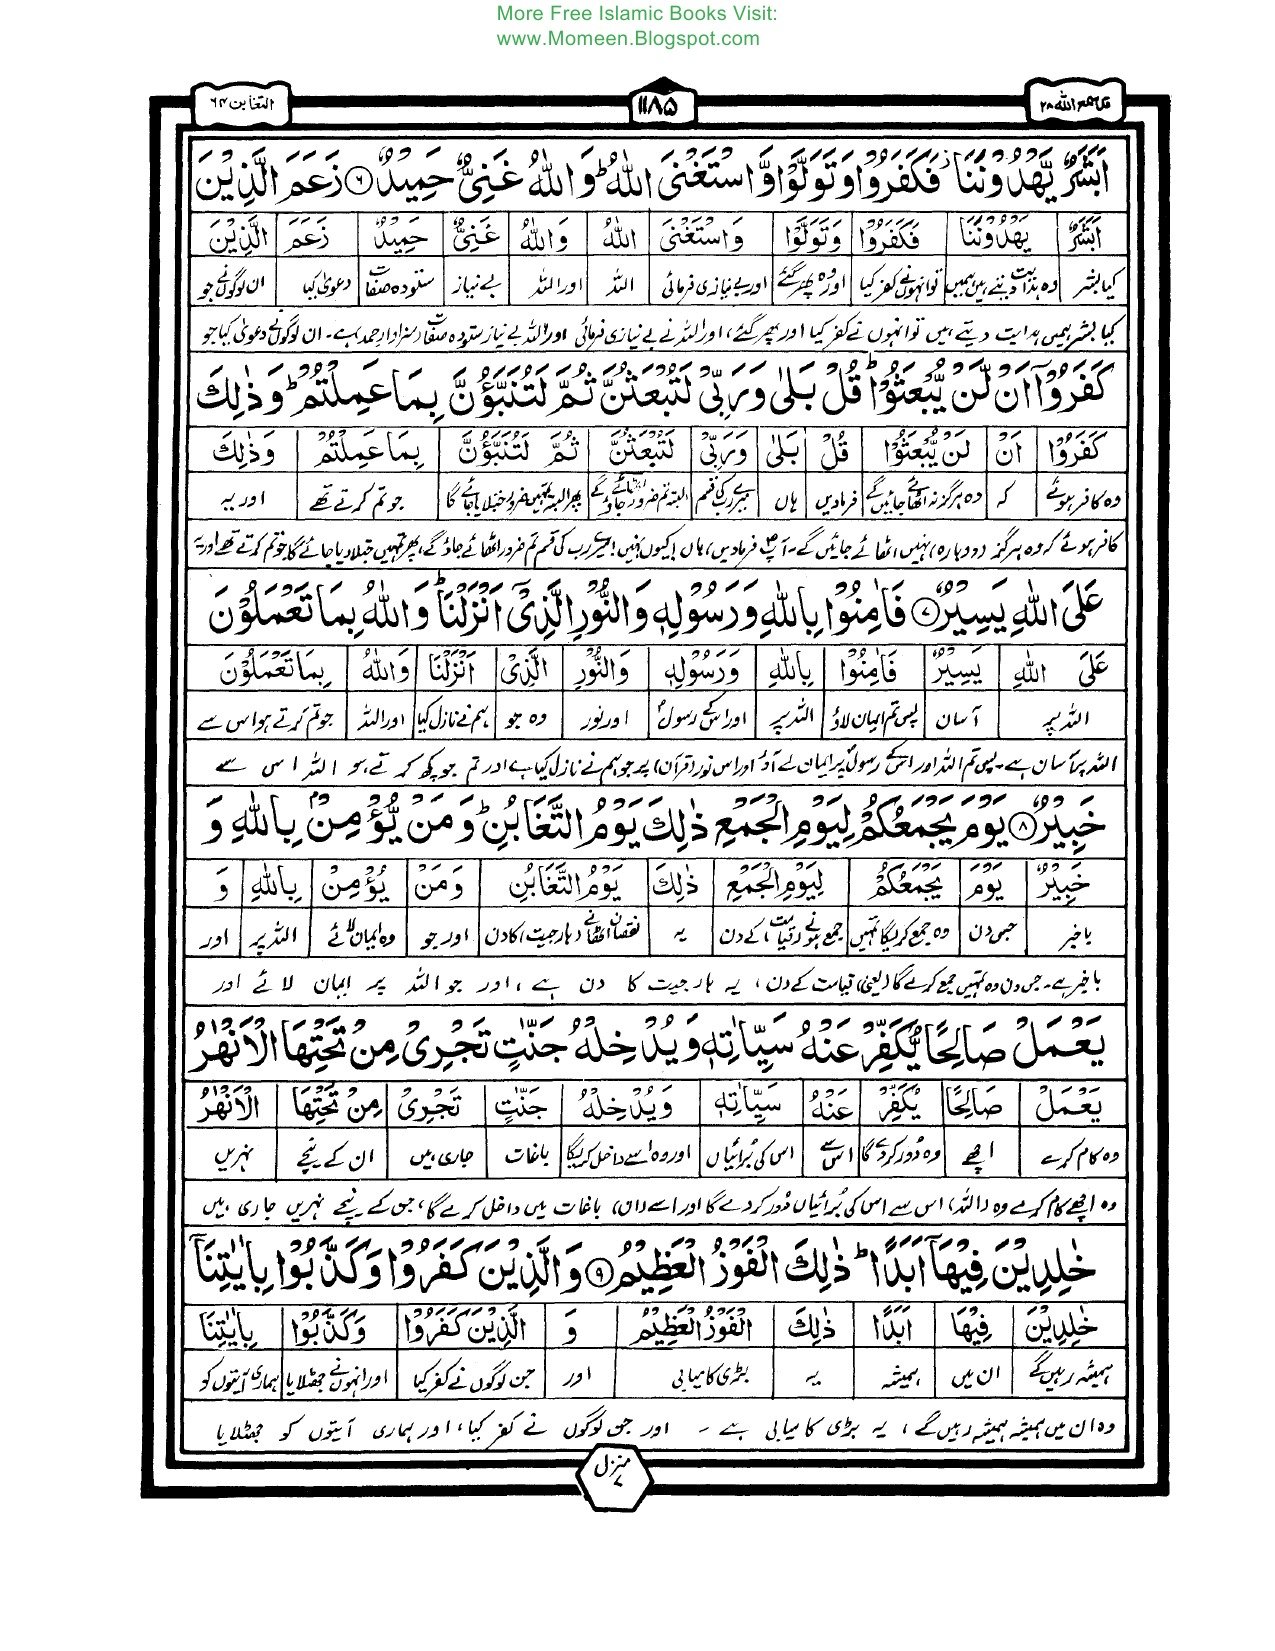 More Free Islamic Books Visit:
www.Momeen.Blogspot.com
قد سمع الله ٢٨
١١٨٥
التغابن ٦٤
اَبَشَرٌ يَّهْدُوْنَنَا فَكَفَرُوْا وَتَوَلَّوْا وَّاسْتَغْنَى اللّٰهُ ؕ وَاللّٰهُ غَنِىٌّ حَمِيْدٌ ۶ زَعَمَ الَّذِيْنَ
اَبَشَرٌ يَهْدُوْنَنَا فَكَفَرُوْا وَتَوَلَّوْا وَاسْتَغْنَى اللّٰهُ وَاللّٰهُ غَنِىٌّ حَمِيْدٌ زَعَمَ الَّذِيْنَ
کیا بشر وہ ہدایت دیتے ہیں ہمیں تو انہوں نے کفر کیا اور وہ پھر گئے اور بے نیازی فرمائی اللہ اور اللہ بے نیاز ستودہ صفات دعویٰ کیا ان لوگوں نے جو
کیا بشر ہمیں ہدایت دیتے ہیں تو انہوں نے کفر کیا اور پھر گئے، اور اللہ نے بے نیازی فرمائی اور اللہ بے نیاز ستودہ صفات (سزاوار حمد) ہے۔ ان لوگوں نے دعویٰ کیا جو
كَفَرُوْۤا اَنْ لَّنْ يُّبْعَثُوْا ؕ قُلْ بَلٰى وَرَبِّىْ لَتُبْعَثُنَّ ثُمَّ لَتُنَبَّؤُنَّ بِمَا عَمِلْتُمْ ؕ وَذٰلِكَ
كَفَرُوْا اَنْ لَنْ يُّبْعَثُوْا قُلْ بَلٰى وَرَبِّىْ لَتُبْعَثُنَّ ثُمَّ لَتُنَبَّؤُنَّ بِمَا عَمِلْتُمْ وَذٰلِكَ
وہ کافر ہوئے کہ وہ ہرگز نہ اٹھائے جائیں گے فرمادیں ہاں میرے رب کی قسم البتہ تم ضرور اٹھائے جاؤ گے پھر البتہ تمہیں ضرور جتلایا جائے گا جو تم کرتے تھے اور یہ
کافر ہوئے کہ وہ ہرگز (دوبارہ) نہیں اٹھائے جائیں گے۔ آپؐ فرمادیں، ہاں (کیوں نہیں) میرے رب کی قسم تم ضرور اٹھائے جاؤ گے، پھر تمہیں جتلا دیا جائے گا جو تم کرتے تھے اور یہ
عَلَى اللّٰهِ يَسِيْرٌ ۷ فَاٰمِنُوْا بِاللّٰهِ وَرَسُوْلِهٖ وَالنُّوْرِ الَّذِىْۤ اَنْزَلْنَا ؕ وَاللّٰهُ بِمَا تَعْمَلُوْنَ
عَلَى اللّٰهِ يَسِيْرٌ فَاٰمِنُوْا بِاللّٰهِ وَرَسُوْلِهٖ وَالنُّوْرِ الَّذِىْ اَنْزَلْنَا وَاللّٰهُ بِمَا تَعْمَلُوْنَ
اللہ پر آسان پس تم ایمان لاؤ اللہ پر اور اس کے رسولؐ اور نور وہ جو ہم نے نازل کیا اور اللہ جو تم کرتے ہو اس سے
اللہ پر آسان ہے۔ پس تم اللہ اور اس کے رسولؐ پر ایمان لے آؤ اور اس نور (قرآن) پر جو ہم نے نازل کیا ہے اور تم جو کچھ کرتے ہو اللہ اس سے
خَبِيْرٌ ۸ يَوْمَ يَجْمَعُكُمْ لِيَوْمِ الْجَمْعِ ذٰلِكَ يَوْمُ التَّغَابُنِ ؕ وَمَنْ يُّؤْمِنْۢ بِاللّٰهِ وَ
خَبِيْرٌ يَوْمَ يَجْمَعُكُمْ لِيَوْمِ الْجَمْعِ ذٰلِكَ يَوْمُ التَّغَابُنِ وَمَنْ يُؤْمِنْ بِاللّٰهِ وَ
باخبر جس دن وہ جمع کریگا تمہیں جمع ہونے (قیامت) کے دن یہ نقصان اٹھانے (ہار جیت) کا دن اور جو وہ ایمان لائے اللہ پر اور
باخبر ہے۔ جس دن وہ تمہیں جمع کرے گا (یعنی) قیامت کے دن، یہ ہار جیت کا دن ہے، اور جو اللہ پر ایمان لائے اور
يَعْمَلْ صَالِحًا يُّكَفِّرْ عَنْهُ سَيِّاٰتِهٖ وَيُدْخِلْهُ جَنّٰتٍ تَجْرِىْ مِنْ تَحْتِهَا الْاَنْهٰرُ
يَعْمَلْ صَالِحًا يُكَفِّرْ عَنْهُ سَيِّاٰتِهٖ وَيُدْخِلْهُ جَنّٰتٍ تَجْرِىْ مِنْ تَحْتِهَا الْاَنْهٰرُ
وہ کام کرے اچھے وہ دُور کردے گا اس سے اس کی بُرائیاں اور وہ اسے داخل کریگا باغات جاری ہیں ان کے نیچے نہریں
وہ اچھے کام کرے وہ (اللہ) اس سے اس کی بُرائیاں دُور کردے گا اور اسے (ان) باغات میں داخل کرے گا، جن کے نیچے نہریں جاری ہیں
خٰلِدِيْنَ فِيْهَاۤ اَبَدًا ؕ ذٰلِكَ الْفَوْزُ الْعَظِيْمُ ۹ وَالَّذِيْنَ كَفَرُوْا وَكَذَّبُوْا بِاٰيٰتِنَاۤ
خٰلِدِيْنَ فِيْهَا اَبَدًا ذٰلِكَ الْفَوْزُ الْعَظِيْمُ وَ الَّذِيْنَ كَفَرُوْا وَكَذَّبُوْا بِاٰيٰتِنَا
ہمیشہ رہیں گے ان میں ہمیشہ یہ بڑی کامیابی اور جن لوگوں نے کفر کیا اور انہوں نے جھٹلایا ہماری آیتوں کو
وہ ان میں ہمیشہ ہمیشہ رہیں گے، یہ بڑی کامیابی ہے ۔ اور جن لوگوں نے کفر کیا، اور ہماری آیتوں کو جھٹلایا
منزل ۷